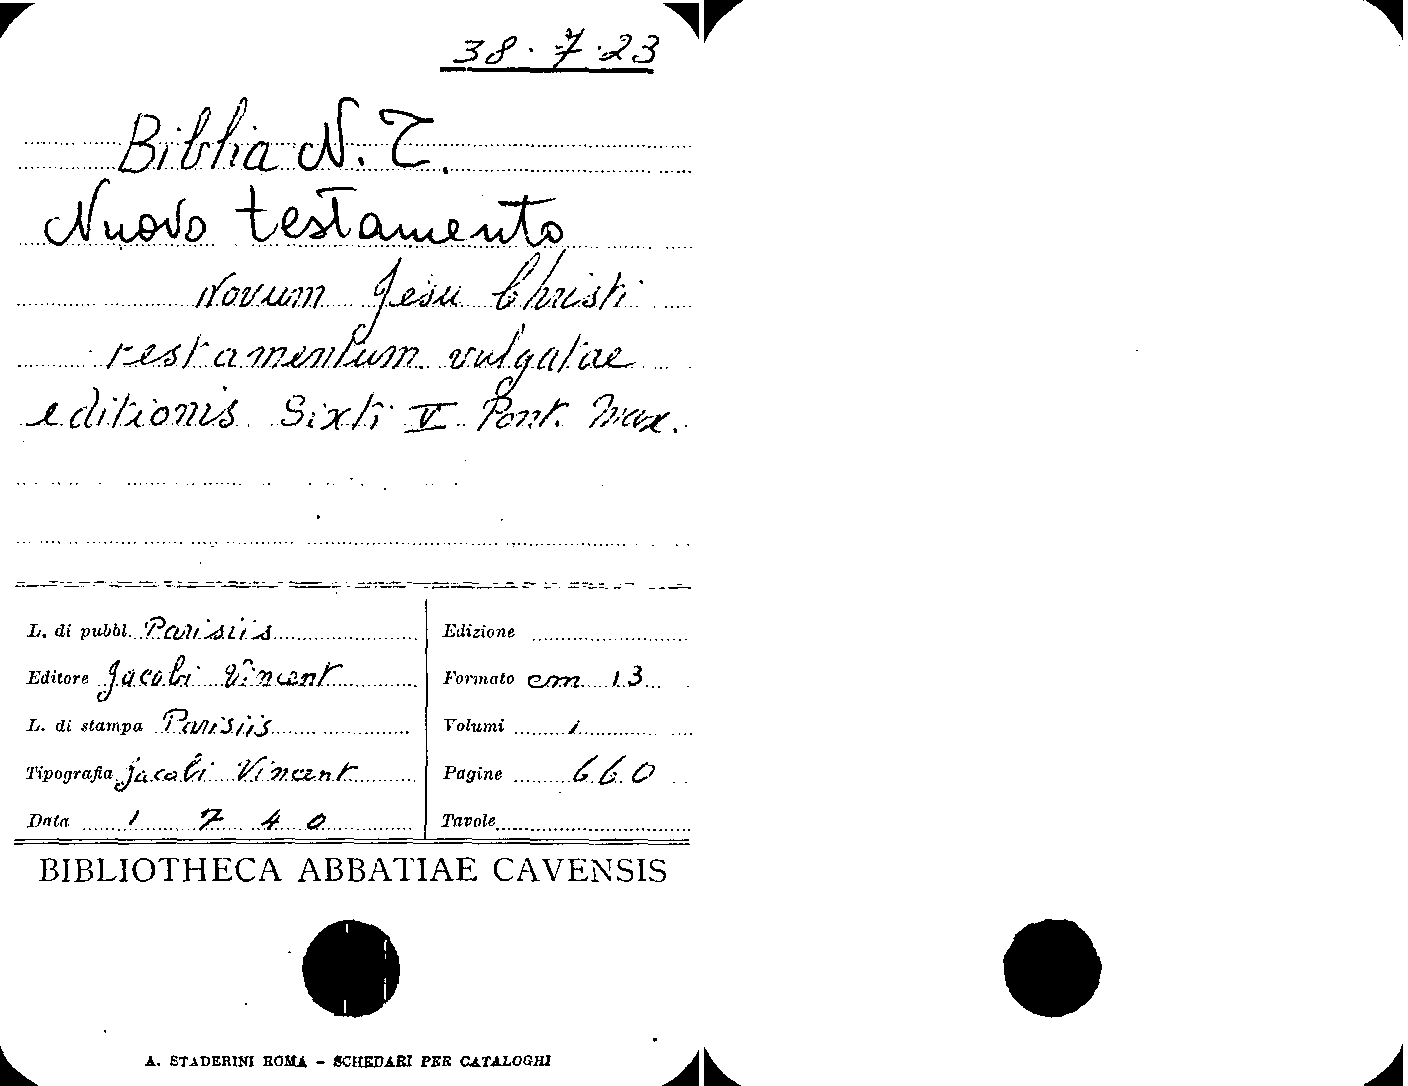 38.7.23
Biblia N.T.
Nuovo testamento
Novum Jesu Christi
testamentum vulgatae
editionis Sixti V Pont. Max.
L. di pubbl. Parisiis
Editore Jacobi Vincent
L. di stampa Parisiis
Tipografia Jacobi Vincent
Data 1740
Edizione
Formato cm 13
Volumi 1
Pagine 660
Tavole
BIBLIOTHECA ABBATIAE CAVENSIS
A. STADERINI ROMA - SCHEDARI PER CATALOGHI